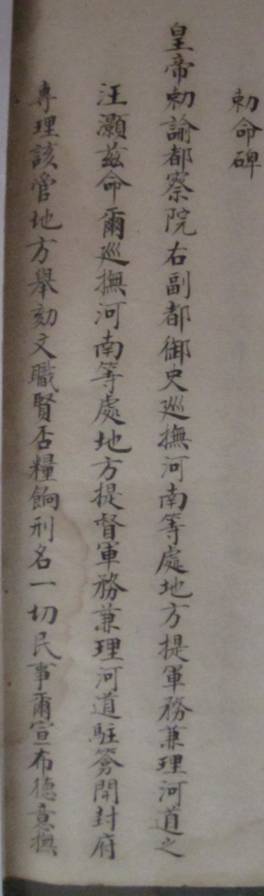 勅命碑
皇帝勅諭都察院右副都御史巡撫河南等處地方提軍務兼理河道之
汪灝茲命爾巡撫河南等處地方提督軍務兼理河道駐劄開封府
專理該管地方舉劾文職賢否糧餉刑名一切民事爾宣布德意撫